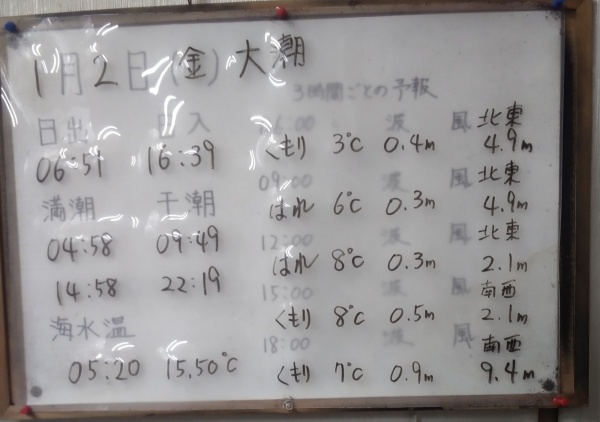 1月2日(金)大潮
3時間ごとの予報
日出 日入
06:51 16:39
満潮 干潮
04:58 09:49
14:58 22:19
海水温
05:20 15.50℃
06:00 波 風 北東
くもり 3℃ 0.4m 4.9m
09:00 波 風 北東
はれ 6℃ 0.3m 4.9m
12:00 波 風 北東
はれ 8℃ 0.3m 2.1m
15:00 波 風 南西
くもり 8℃ 0.5m 2.1m
18:00 波 風 南西
くもり 7℃ 0.9m 9.4m